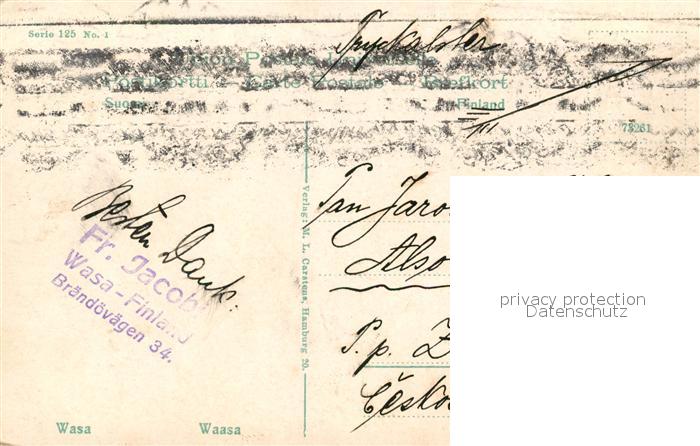 Serie 125 No. 1
Union Postale Universelle
Postikortti — Carte Postale — Brefkort
Suomi Finland
73261
Besten Dank.
Fr. Jacob
Wasa-Finland
Brändövägen 34.
Verlag: M. L. Carstens, Hamburg 20.
Pan Jaro
Also
P. p. Z
Česko
privacy protection
Datenschutz
Wasa Waasa